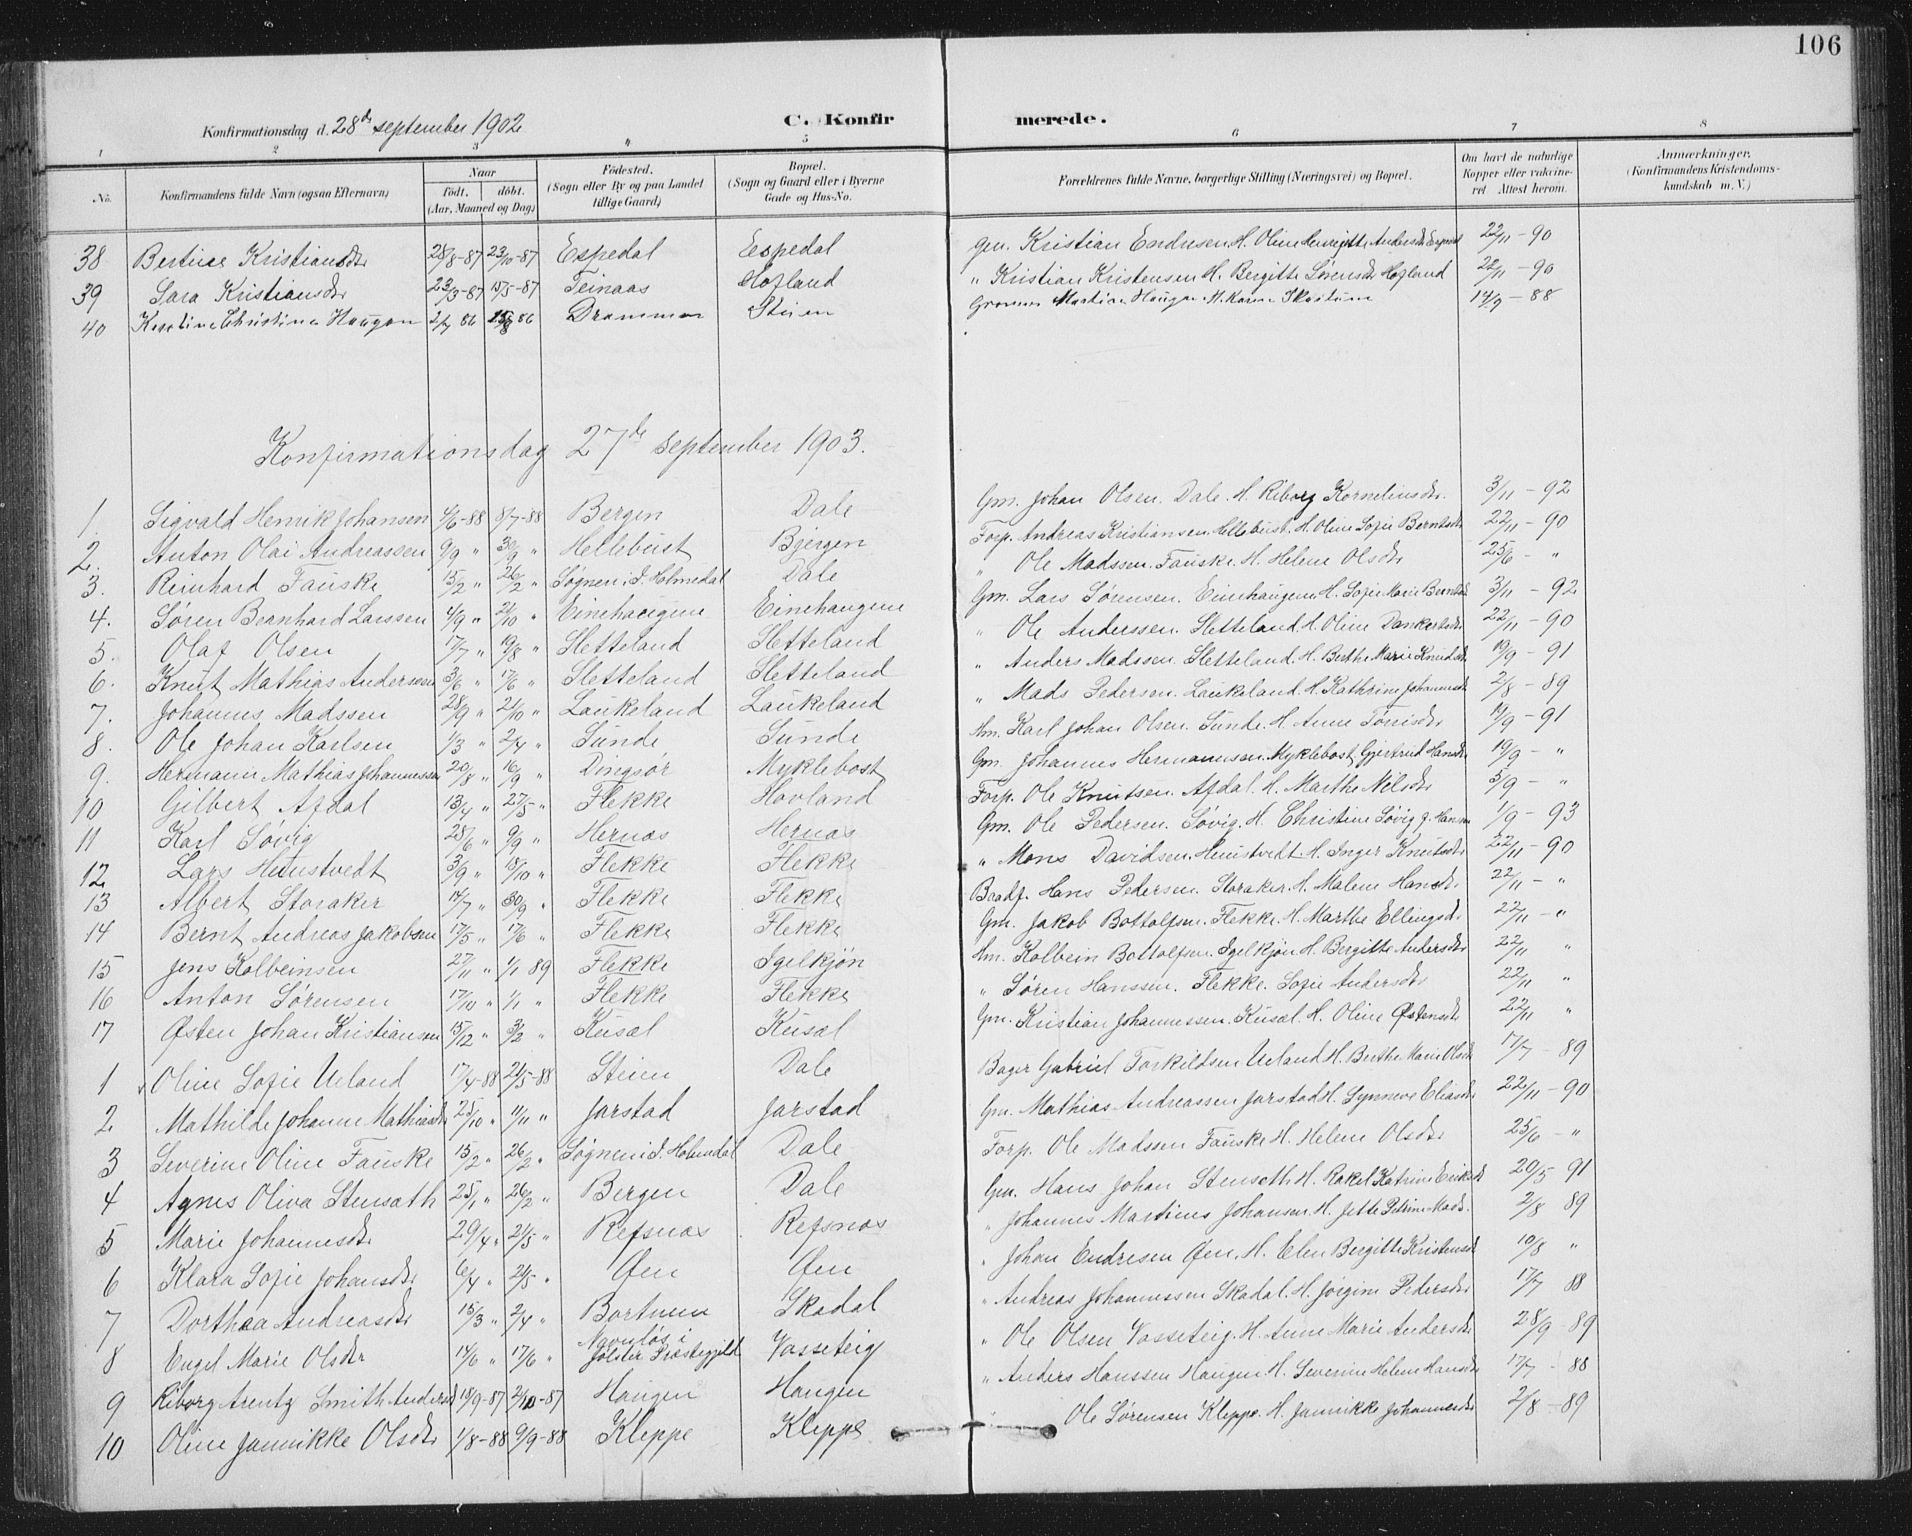 106
Konfirmationsdag d. 28de september 1902
C. Konfirmerede.
1 2 3 4 5 6 7 8
No. Konfirmandens fulde Navn (ogsaa Efternavn) Naar födt. döbt. (Aar, Maaned og Dag) Födested. (Sogn eller By og paa Landet tillige Gaard) Bopæl. (Sogn og Gaard eller i Byerne Gade og Hus-No. Forældrenes fulde Navne, borgerlige Stilling (Næringsvei) og Bopæl. Om havt de naturlige Kopper eller vakcineret Attest herom. Anmærkninger. (Konfirmandens Kristendomskundskab m. V.)
38 Bertine Kristiansdr 28/8-87 23/10-87 Espedal Espedal Gm. Kristian Endresen H. Oline Henrigitte Andersdr 22/11-90
39 Sara Kristiansdr 23/3-87 15/5-87 Teinaas Hofland " Kristian Kristensen H. Bergitte Sørensdr Hofland 22/11-90
40 Kristine Christine Haugan 2/7 86 15/8 86 Drammen Steien Martin Haugan H. Karen 14/9-88
Konfirmationsdag 27de september 1903.
1. Sigvald Henrik Johansen 4/6-88 8/7-88 Bergen Dale Gm. Johan Olsen. Dale. H. Riborg Kornelinsdr. 3/11-92
2. Anton Olai Andreassen 9/9 " 30/9 " Hellebust Bjergen Forp. Andreas Kristiansen Hellebust. H. Oline Sofie Berntsdr 22/11-90
3. Reinhard Fauske 15/2 " 26/2 " Søgnen i I. Holmedal Dale " Ole Madssen. Fauske. H. Helene Olsdr 25/6 - "
4. Søren Bernhard Larssen 4/9 " 21/10 " Einehaugene Einehaugene Gm. Lars Sørensen. Einehaugene H. Sofie Marie Berntsdr 3/11-92
5. Olaf Olsen 17/7 " 19/8 " Sletteland Sletteland " Ole Anderssen. Sletteland. H. Oline Dankertsdr 22/11-90
6. Knut Mathias Anderssen 3/6 " 17/6 " Sletteland Sletteland " Anders Madssen. Sletteland. H. Berthe Marie Knudsdr 19/9-91
7. Johannes Madssen 28/9 " 21/10 " Laukeland Laukeland " Mads Pedersen. Laukeland. H. Kathrine Johannesdr 2/8-89
8. Ole Johan Karlsen 1/3 " 2/4 " Sunde Sunde Hm. Karl Johan Olsen. Sunde. H. Anne Tørrisdr 19/9-91
9. Hermann Mathias Johannessen 20/8 " 16/9 " Dingsör Myklebost Gm. Johannes Hermannsen Myklebost Gjertrud Hansdr 19/9 - "
10 Gilbert Afdal 13/4 " 27/5 " Flekke Hovland Forp. Ole Knutsen. Afdal. H. Marthe Nilsdr 5/9 - "
11 Karl Søvig 28/6 " 9/9 " Hernæs Hernæs Gm. Ole Pedersen. Søvig. H. Christine Søvig f. Hansen 1/9-93
12 Lars Heunstvedt 3/9 " 15/10 " Flekke Flekke " Mons Davidsen. Heunstvedt. H. Inger Knutsdr 22/11-90
13 Albert Storaker 14/7 " 30/9 " Flekke Flekke Baadf. Hans Pedersen. Storaker. H. Malene Hansdr. 22/11 - "
14 Bernt Andreas Jakobsen 17/5 " 17/6 " Flekke Flekke Gm. Jakob Bottolfsen. Flekke. H. Marthe Ellingsdr 22/11 - "
15 Jens Kolbeinsen 27/11 " 1/1 89 Flekke Igelkjön Hm. Kolbein Bottolfsen. Igelkjön H. Bergitte Andersdr 22/11 "
16 Anton Sørensen 17/10 " 1/1 " Flekke Flekke " Søren Hanssen. Flekke. Sofie Andersdr 22/11 "
17 Østen Johan Kristiansen 15/12 " 3/2 " Kusæl Kusæl Gm. Kristian Johannessen. Kusæl. H. Oline Østensdr 22/11 "
1 Oline Sofie Ueland 17/4-88 21/5-88 Steien Dale Bager Gabriel Torkildsen Ueland H. Berthe Marie Olsdr 17/7-89
2 Mathilde Johanne Mathiasdr 25/10 " 11/11 " Jarstad Jarstad Gm. Mathias Andreassen Jarstad H. Synneve Eliasdr 22/11-90
3 Severine Oline Fauske 15/2 " 26/2 " Søgnen i I. Holmedal Dale Forp. Ole Madssen Fauske H. Helene Olsdr 25/6 - "
4 Agnes Oliva Stensæth 25/1 " 26/2 " Bergen Dale Gm. Hans Johan Stenseth H. Rakel Katrine Eriksdr 20/5 91
5 Marie Johannesdr 29/4 " 21/5 " Refsnæs Refsnæs " Johannes Martinus Johansen H. Jette Petrine Mads. 2/8 89
6 Klara Sofie Johansdr 6/4 " 21/5 " Øen Øen " Johan Endresen Øen. H. Elen Bergitte Kristensdr 10/8 "
7 Dorthea Andreasdr 15/3 " 2/4 " Bortnen Skadal " Andreas Johannessen Skadal. H. Jørgine Pedersdr 17/7 88
8 Engel Marie Olsdr 14/6 " 17/6 " Navnløs i Jølster Præstegjeld Vasseteig " Ole Olsen Vasseteig. H. Anne Marie Andersdr 28/9-89
9 Riborg Arentz Smith Andersdr 18/9-87 2/10-87 Haugen Haugen " Anders Hanssen Haugen. H. Severine Helene Hansdr 17/7-88
10 Oline Jannikke Olsdr 1/8-88 9/9-88 Kleppe Kleppe Ole Sørensen Kleppe. H. Jannikke Johannesdr 2/8-89